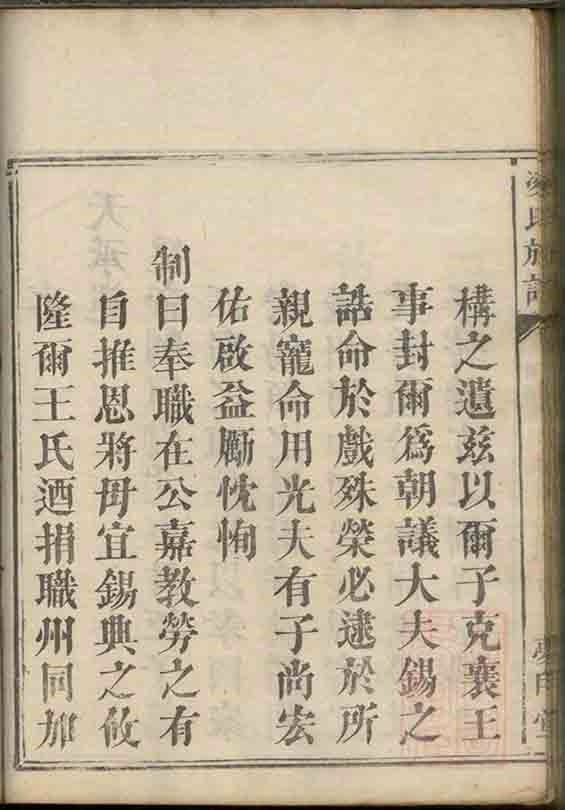 構之遺兹以爾子克襄王
事封爾爲朝議大夫錫之
誥命於戲殊榮必逮於所
親寵命用光夫有子尚宏
佑啟益勵忱恂
制曰奉職在公嘉教勞之有
自推恩將母宜錫典之攸
隆爾王氏迺捐職州同加
氏族